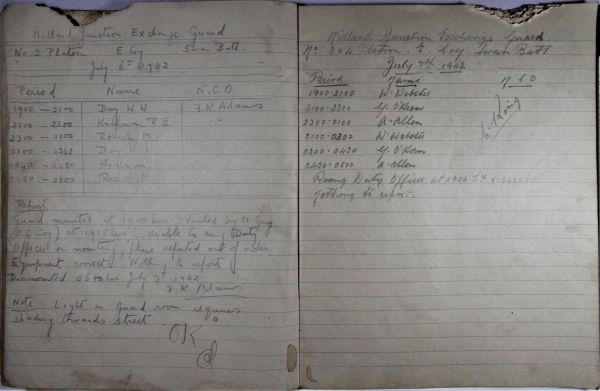 Midland Junction Exchange Guard
No. 2 Platoon E Coy Swan Batt.
July 6th 1942
Period Name N.C.O.
1900 - 2100 Day W F.K Adams
2100 - 2300 R E "
2300 - 0100 M
0100 - Day W
- 0430
0430 - 0600 M
Report
Guard mounted at 1900 hrs. Visited by Mr Guy
(O.C Coy) at 1915 hrs. Unable to ring Duty
Officer on mounting, 'phone reported out of order.
Equipment correct. Nothing to report
Dismounted 0600 hrs July 7th 1942
F.K Adams
Note Light in Guard room requires
shading towards street
OK
Midland Junction Exchange Guard
No. 3&4 Platoon. E. Coy Swan Batt
July 7th 1942
Period Name N C O
1900-2100 W. Webster
2100-2300 G. O'Kern
2300-0100 A. Allen
0100-0300 W. Webster
0300-0430 G. O'Kern
0430-0600 A. Allen
King
Rang Duty Officer at
nothing to report.